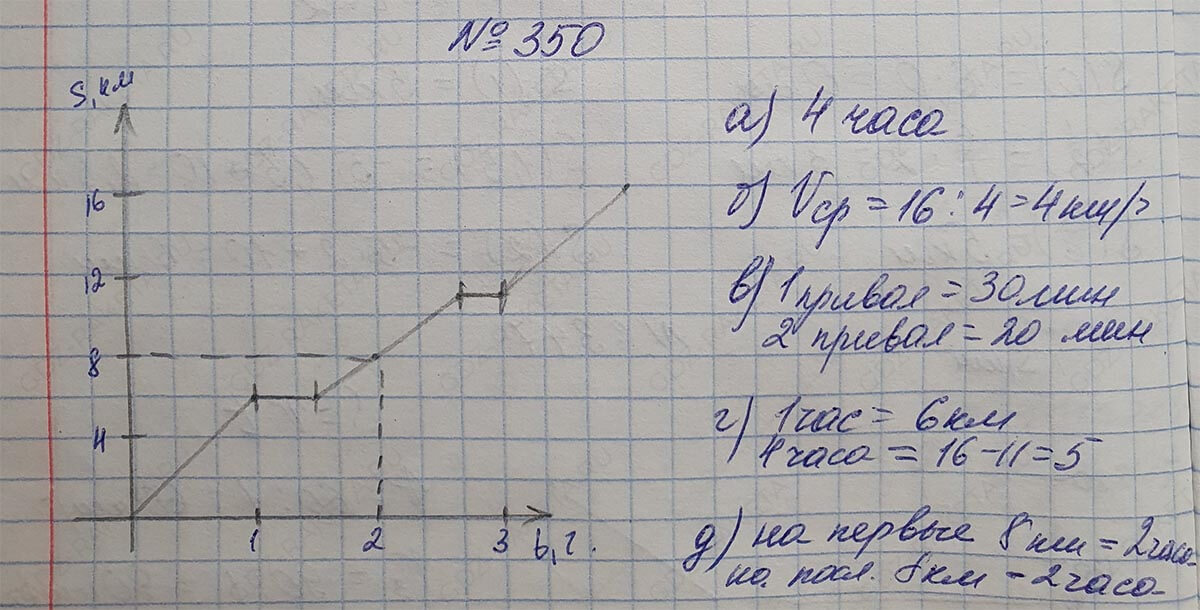 № 350
S, км
16
12
8
4
1 2 3 t, г.
а) 4 часа
б) Vср = 16 : 4 = 4 км/
в) 1 привал = 30 мин
2 привал = 20 мин
г) 1 час = 6 км
4 часа = 16 - 11 = 5
д) на первые 8 км = 2 часа
на посл. 8 км - 2 часа